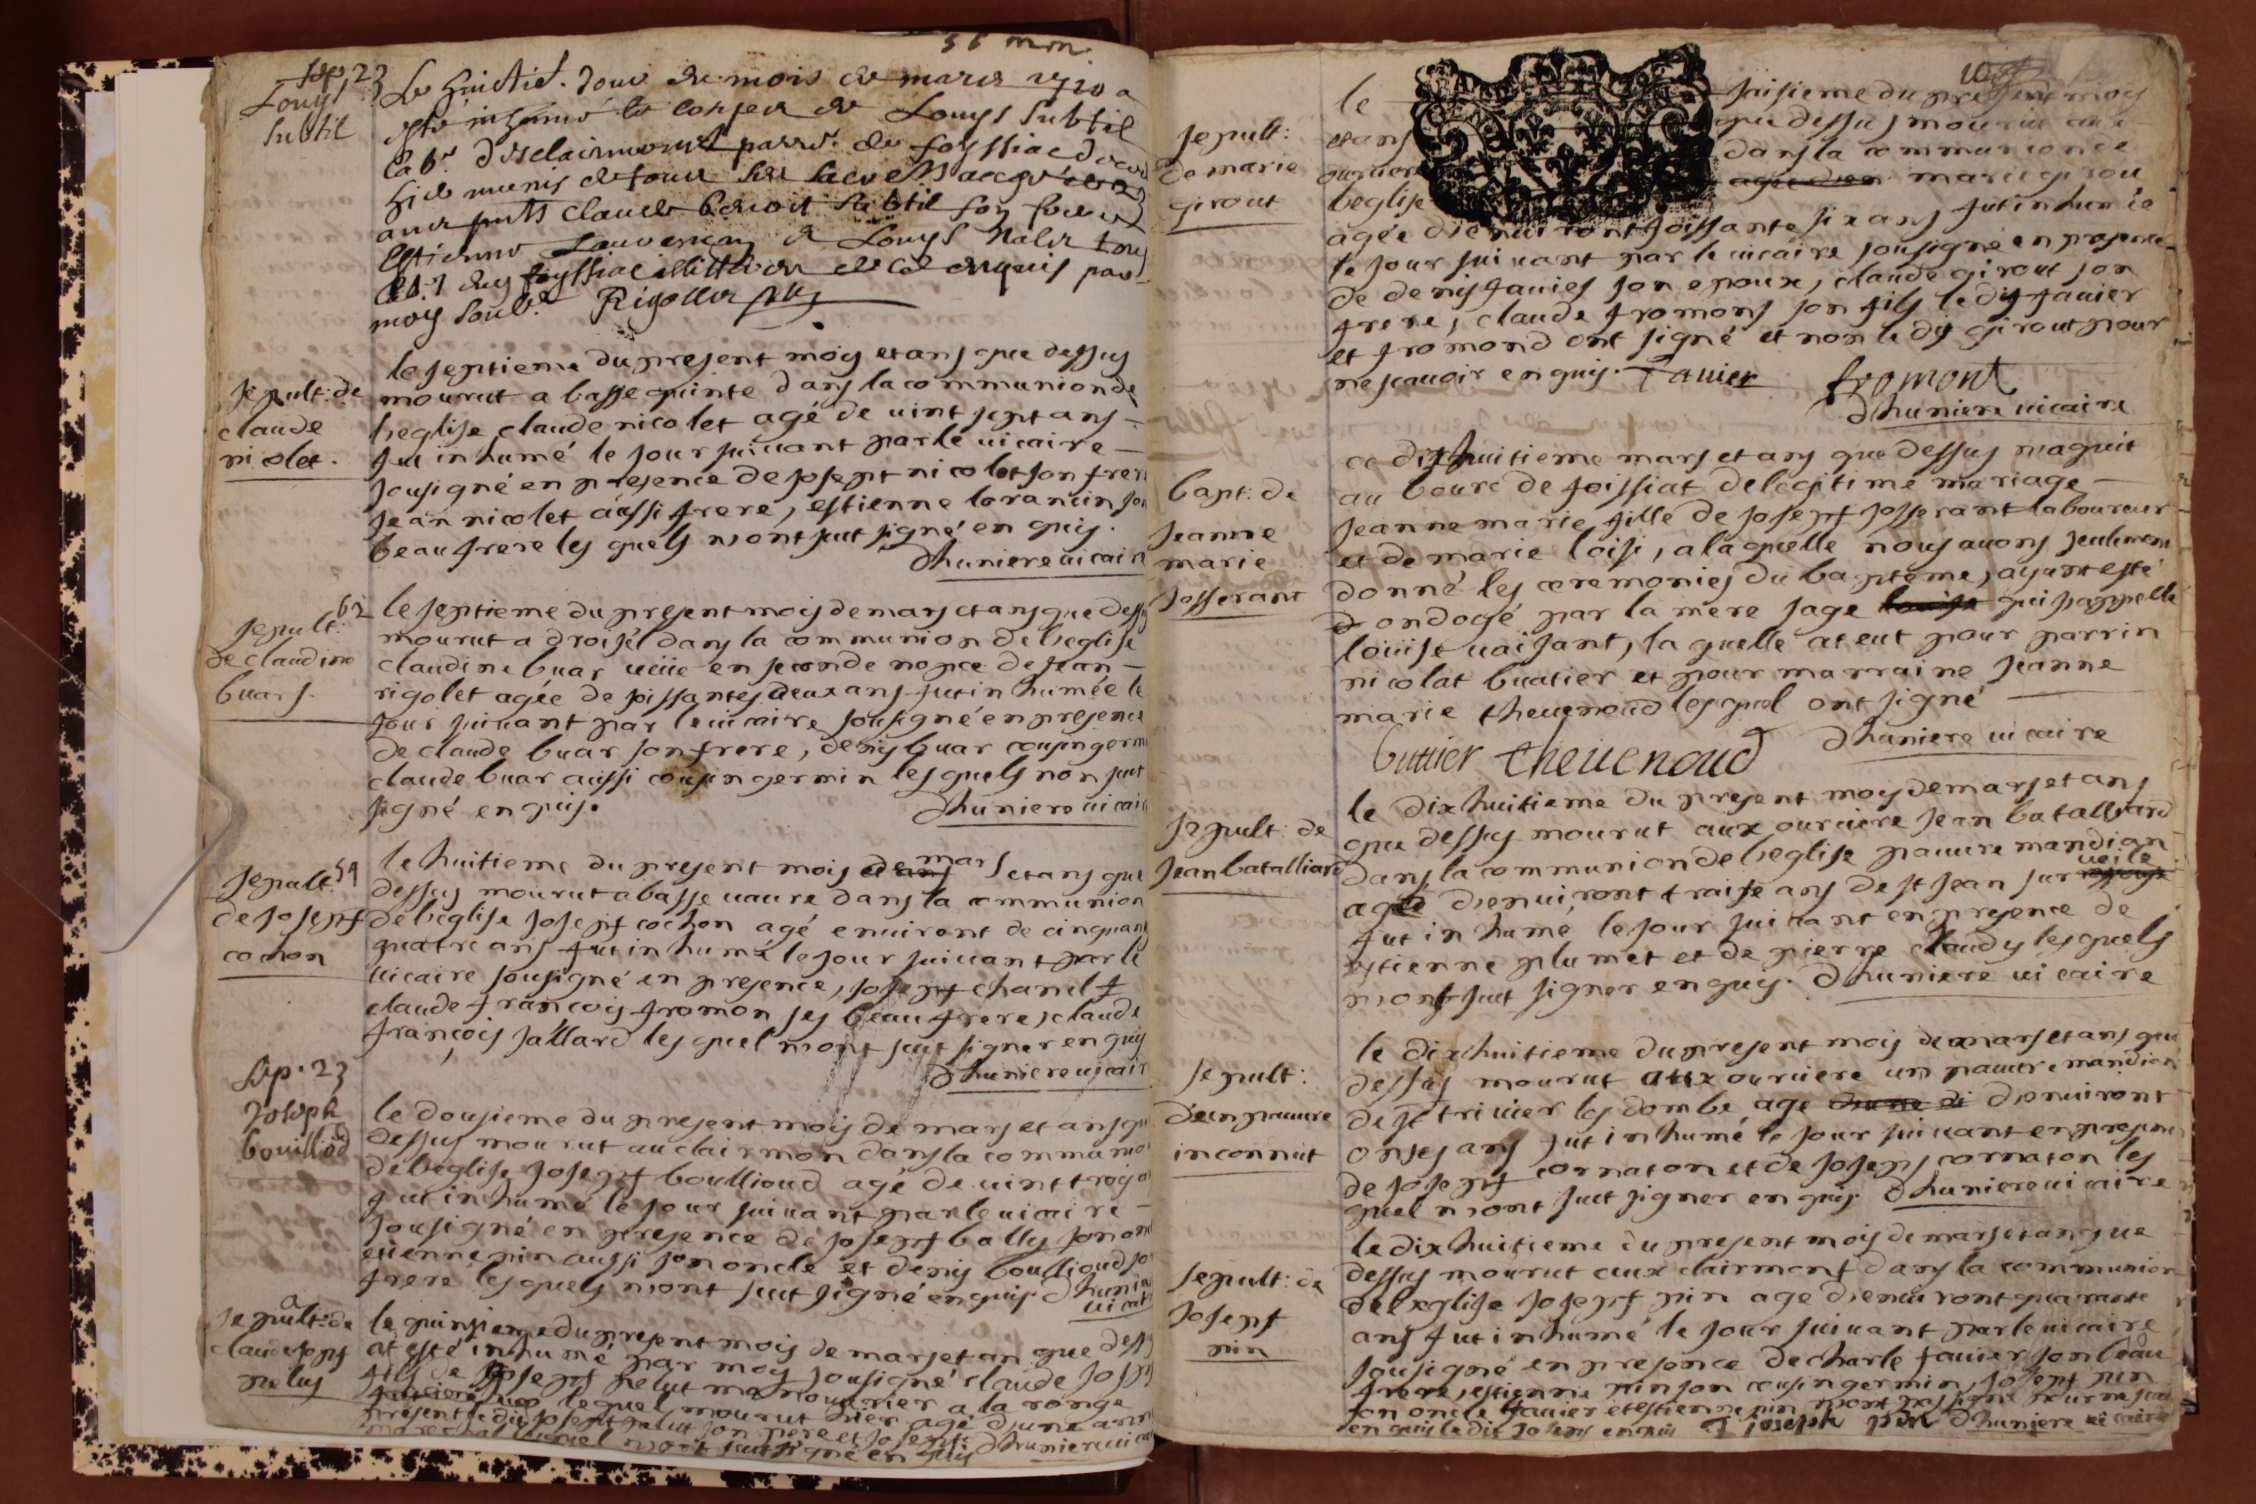 56 mm
Sep. 23
Louys
Subtil
Le huictie. Jour du mois de mars 1710 a
esté inhumé le corps de Louys Subtil
lab.r desclairmont parr.e de foyssiac
muni de tous les sacre.ts
claude benoit subtil son
Estienne Louys tous
foyssiac de ce enquis par
moy soub.é Rigollet
Sepult: de
claude
nicolet.
le septieme du present mois et ans que dessus
mourut a basse quinte dans la communion de
l'eglise claude nicolet agé de vint sept ans
fut inhumé le jour suivant par le vicaire
sousigné en presence de josept nicolet son frere
jean nicolet aussi frere, estienne son
beau frere les quels n'ont sut signé enquis.
Dhuniere vicaire
62
Sepult:
de claudine
buars.
le septieme du present mois de mars et ans que dessus
mourut a droisél dans la communion de l'eglise
claudine buar veüie en seconde nopce de jean
rigolet agée de soissantes deux ans fut inhumée le
jour suivant par le vicaire sousigné en presence
de claude buar son frere, denis buar cousin germ
claude buar aussi cousin germin les quels non sut
signé enquis.
Dhuniere vicair
59
Sepult:
de josepf
cochon
le huitieme du present mois mars et ans que
dessus mourut a basse vavre dans la communion
de l'eglise josepf cochon agé environt de cinquant
quatre ans fut inhumé le jour suivant par le
vicaire sousigné en presence, josepf chanel
claude francois fromon ses beau frere, claude
francois jaillard les quel n'ont sut signer enquis
Dhuniere vicair
Sep. 23
Joseph
bouilloud
le dousieme du present mois de mars et ans qu
dessus mourut au clairmon dans la communio
de l'eglise josepf boullioud agé de vint trois a
fut inhumé le jour suivant par le vicaire
sousigné en presence de josepf bally son on
etienne pin aussi son oncle et denis boullioud so
frere les quels n'ont sut signé enquis. Dhunie
vicai
Sepult: de
claude josepf
pelus
le quinsieme du present mois de mars et an que dess
at esté inhumé par moy sousigné claude josep
fils de josepf pelut manouvrier a la ronge
lequel mourut hier agé d'une ann
present le dit josept pelut son pere et josept
lequel n'ont sut signé enquis Dhuniere vica
10
Sepult:
de marie
girout
le seisieme du present mois
et ans que dessus mourut aux
ourcier dans la communion de
l'eglise marie girou
agée d'environt soissante six ans fut inhumée
le jour suivant par le vicaire sousigné en presence
de denis favier son epoux, claude girout son
frere, claude fromons son fils le dit favier
et fromond ont signé et non le dit girout pour
ne scavoir enquis. Favier fromont
Dhuniere vicaire
bapt: de
jeanne
marie
josserant
ce dixhuitieme mars et ans que dessus naquit
au bourc de foissiat de legitime mariage
jeanne marie fille de josepf josserant laboureur
et de marie loisi, a laquelle nous avons seulement
donné les ceremonies du baptême, ayant esté
ondogé par la mere sage qui s'appelle
loüise vaisant, la quelle at eut pour parrin
nicolat buatier et pour marraine jeanne
marie thevenoud lesquel ont signé
Dhuniere vicaire
buttier thevenoud
Sepult: de
jean batalliard
le dixhuitieme du present mois de mars et ans
que dessus mourut aux ourciere jean batalliard
dans la communion de l'eglise pauvre mandian
agée d'environt traise ans de st jean sur veile
fut inhumé le jour suivant en presence de
estienne plumet et de pierre claudy les quels
n'ont sut signer enquis. Dhuniere vicaire
Sepult:
d'un pauvre
inconnut
le dixhuitieme du present mois de mars et ans que
dessus mourut aux ourciere un pauvre mandian
de st trivier les dombe agé d'environt
onses ans fut inhumé le jour suivant en presenc
de josepf cornaton et de josepf cornaton les
quel n'ont sut signer enquis. Dhuniere vicaire
Sepult: de
josepf
pin
le dixhuitieme du present mois de mars et an que
dessus mourut aux clairmont dans la communion
de l'eglise josepf pin age d'environt quarante
ans fut inhumé le jour suivant par le vicaire
sousigné en presence de charle favier son beau
frere, estienne pin son cousin germin, josepf pin
son oncle favier et estienne pin n'ont pas signé pour ne scav
enquis le dit josepf enquis J joseph pin Dhuniere vicaire